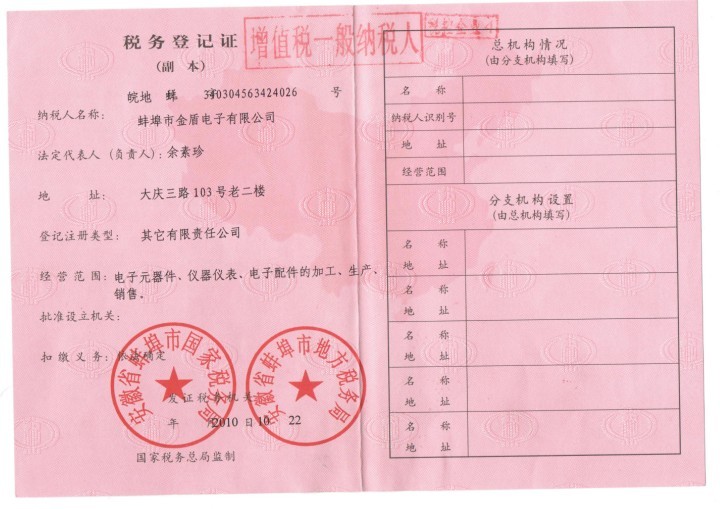 税务登记证
(副 本)
增值税一般纳税人
皖地 蚌 字 340304563424026 号
纳税人名称: 蚌埠市金盾电子有限公司
法定代表人(负责人): 余素珍
地 址: 大庆三路103号老二楼
登记注册类型: 其它有限责任公司
经营范围: 电子元器件、仪器仪表、电子配件的加工、生产、
销售。
批准设立机关:
扣缴义务: 依法确定
安徽省蚌埠市国家税务局
安徽省蚌埠市地方税务局
发证税务机关
年 2010 日 10 22
国家税务总局监制
总机构情况
(由分支机构填写)
名 称
纳税人识别号
地 址
经营范围
分支机构设置
(由总机构填写)
名 称
地 址
名 称
地 址
名 称
地 址
名 称
地 址
名 称
地 址